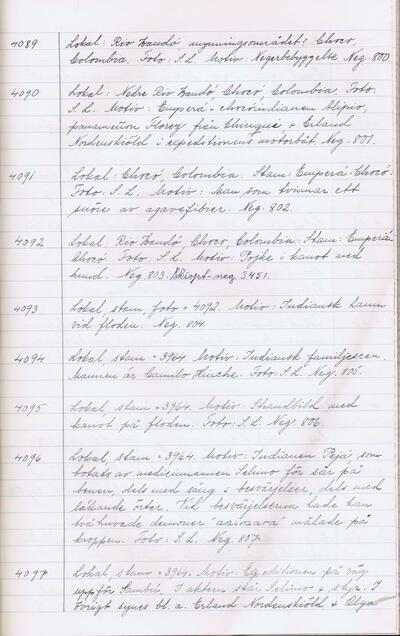 4089 Lokal: Rio Baudó mynningsområdet? Choco,
Colombia. Foto: S.L. Motiv: Negerbebyggelse Neg. 800.
4090 Lokal: Nedre Rio Baudó Choco, Colombia. Foto:
S.L. Motiv: Emperá-chocóindianen Alipio,
panameñon Florey från Chiriqui + Erland
Nordenskiöld i expeditionens motorbåt Neg. 801.
4091 Lokal: Chocó, Colombia. Stam: Emperá-Chocó.
Foto: S.L. Motiv: Man som tvinnar ett
snöre av agavefibrer. Neg. 802.
4092 Lokal: Rio Baudó Choco, Colombia. Stam: Emperá-
Chocó Foto: S.L. Motiv: Pojke i kanot med
hund. Neg. 803. Skiopt-neg. 3451.
4093 Lokal, stam, foto = 4092. Motiv: Indiansk hamn
vid floden. Neg. 804.
4094 Lokal, stam = 3964 Motiv: Indiansk familjescen.
Mannen är Camilo Huiche. Foto: S.L. Neg. 805.
4095 Lokal, stam = 3964. Motiv: Strandbild med
kanot på floden. Foto: S.L. Neg. 806.
4096 Lokal, stam = 3964. Motiv: Indianen Pejá, som
botats av medicinmannen Selimo för sår på
benen, dels med sång o besvärjelser, dels med
läkande örter. Vid besvärjelserna hade han
tvåhuvade demoner målade på
kroppen. Foto: S.L. Neg. 807.
4097 Lokal, stam = 3964. Motiv: Expeditionen på väg
uppför Sambú. I aktern står Selimo + styr. I
övrigt synes bl. a. Erland Nordenskiöld + Olga